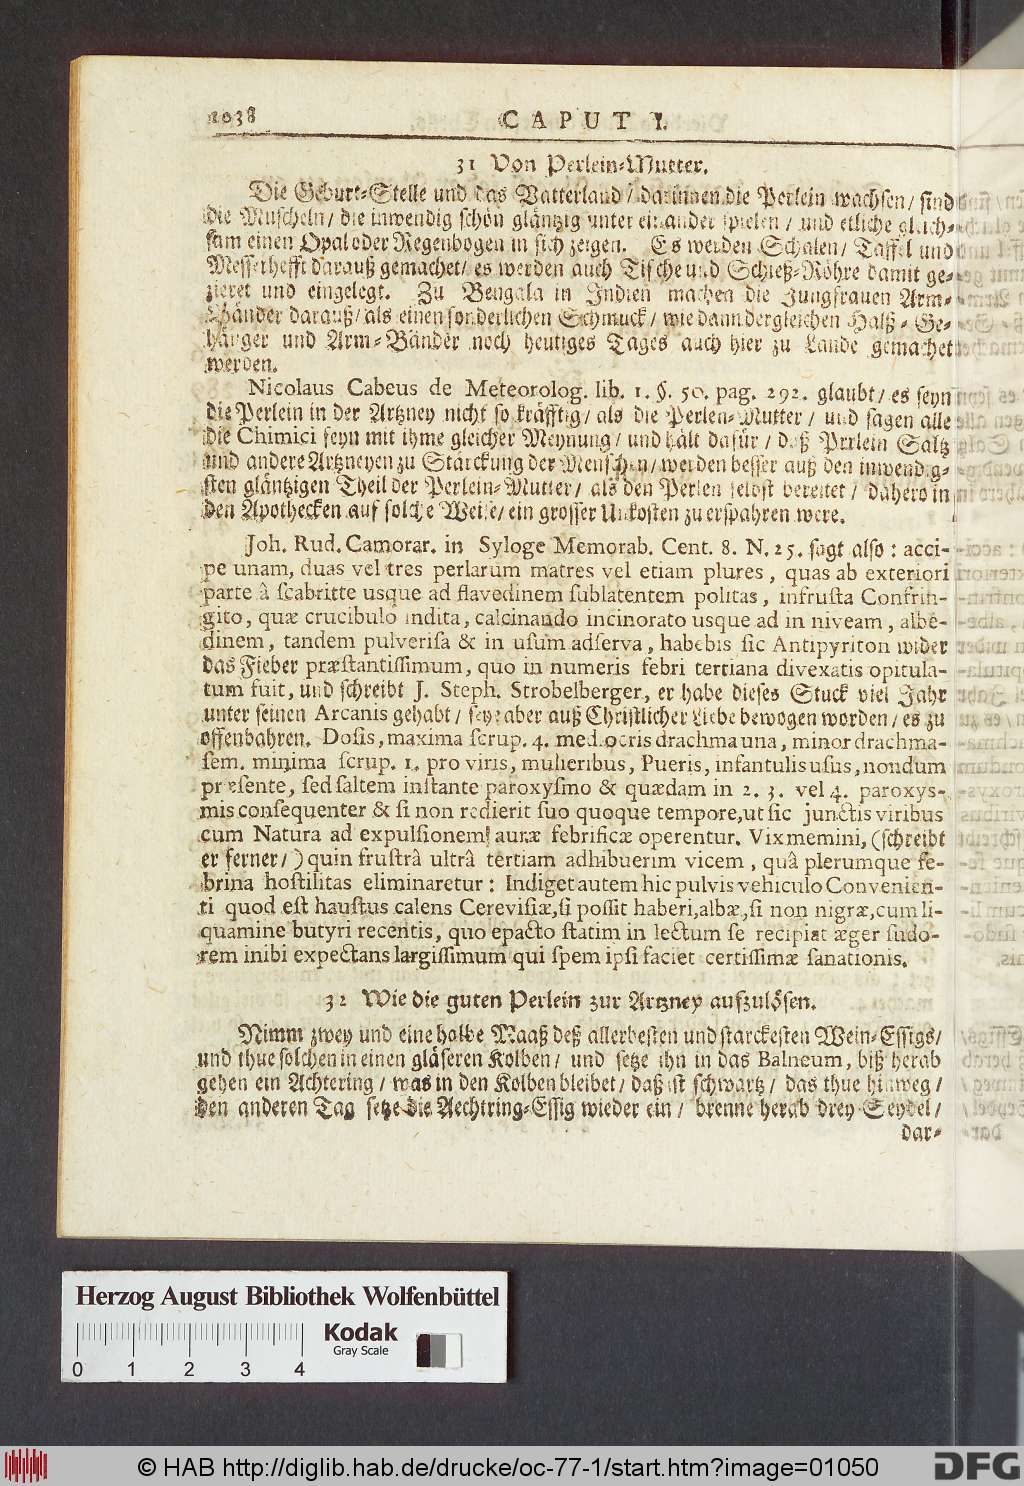 1038 CAPUT I.
31 Von Perlein-Mutter.
Die Geburt-Stelle und das Vatterland / darinnen die Perlein wachsen / sind
die Muscheln / die inwendig schön gläntzig unter einander spielen / und etliche gleich-
sam einen Opal oder Regenbogen in sich zeigen. Es werden Schalen / Taffel und
Messerhefft darauß gemachet / es werden auch Tische und Schieß-Röhre damit ge-
zieret und eingelegt. Zu Bengala in Indien machen die Jungfrauen Arm-
Bänder darauß / als einen sonderlichen Schmuck / wie dann dergleichen Halß-Ge-
hänger und Arm-Bänder noch heutiges Tages auch hier zu Lande gemachet
werden.
Nicolaus Cabeus de Meteorolog. lib. 1. §. 50. pag. 292. glaubt / es seyn
die Perlein in der Artzney nicht so kräfftig / als die Perlen-Mutter / und sagen alle
die Chimici seyn mit ihme gleicher Meynung / und hält dafür / daß Perlein Saltz
und andere Artzneyen zu Stärckung der Menschen / werden besser auß den inwendig-
sten gläntzigen Theil der Perlein-Mutter / als den Perlen selbst bereitet / dahero in
den Apothecken auf solche Weise / ein grosser Unkosten zu erspahren were.
Joh. Rud. Camorar. in Syloge Memorab. Cent. 8. N. 25. sagt also : acci-
pe unam, duas vel tres perlarum matres vel etiam plures, quas ab exteriori
parte â scabritte usque ad flavedinem sublatentem politas, infrusta Confrin-
gito, quæ crucibulo indita, calcinando incinorato usque ad in niveam, albê-
dinem, tandem pulverisa & in usum adserva, habebis sic Antipyriton wider
das Fieber præstantissimum, quo in numeris febri tertiana divexatis opitula-
tum fuit, und schreibt J. Steph. Strobelberger, er habe dieses Stuck viel Jahr
unter seinen Arcanis gehabt / seye aber auß Christlicher Liebe bewogen worden / es zu
offenbahren. Dosis, maxima scrup. 4. mediocris drachma una, minor drachma-
sem. minima scrup. 1. pro viris, mulieribus, Pueris, infantulis usus, nondum
præsente, sed saltem instante paroxysmo & quædam in 2. 3. vel 4. paroxys-
mis consequenter & si non redierit suo quoque tempore, ut sic junctis viribus
cum Natura ad expulsionem auræ febrificæ operentur. Vix memini, (schreibt
er ferner /) quin frustrâ ultrâ tertiam adhibuerim vicem, quâ plerumque fe-
brina hostilitas eliminaretur : Indiget autem hic pulvis vehiculo Convenien-
ti quod est haustus calens Cerevisiæ, si possit haberi, albæ, si non nigræ, cum li-
quamine butyri recentis, quo epacto statim in lectum se recipiat æger sudo-
rem inibi expectans largissimum qui spem ipsi faciet certissimæ sanationis.
32 Wie die guten Perlein zur Artzney aufzulösen.
Nimm zwey und eine halbe Maaß deß allerbesten und starckesten Wein-Essigs /
und thue solchen in einen gläseren Kolben / und setze ihn in das Balneum, biß herab
gehen ein Achtering / was in den Kolben bleibet / daß ist schwartz / das thue hinweg /
den anderen Tag setze die Aechtring-Essig wieder ein / brenne herab drey Seydel /
dar-
Herzog August Bibliothek Wolfenbüttel
Kodak
Gray Scale
0 1 2 3 4
© HAB http://diglib.hab.de/drucke/oc-77-1/start.htm?image=01050
DFG